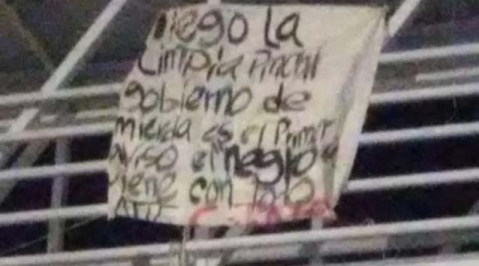 llego La
Limpia Pinchi
gobierno de
mierda es el Primer
aviso el negro
viene con todo
ATTE